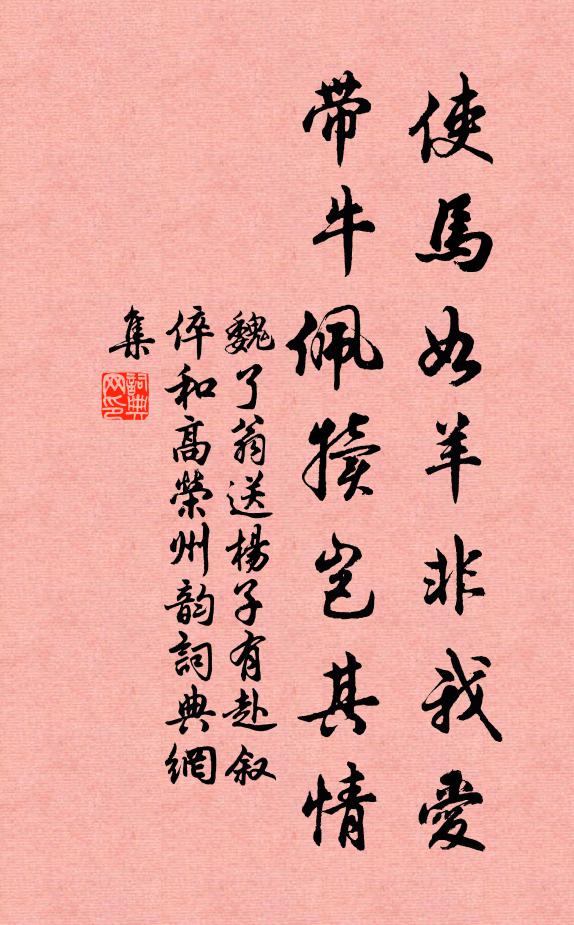 使馬如羊非我愛
帶牛佩犢豈其情
魏了翁送楊子有赴叙
倅和高榮州韵詞典網
集
詞典网印